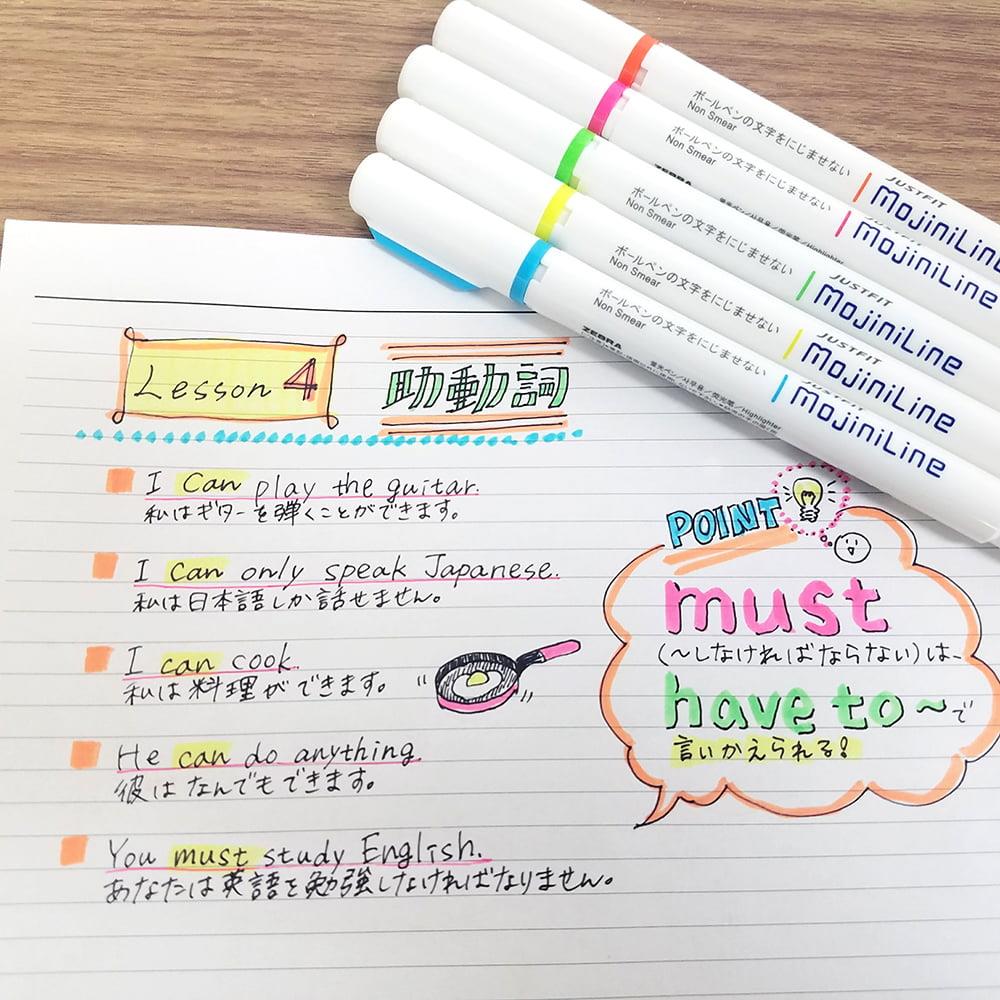 ボールペンの文字をにじませない
Non Smear
JUSTFIT
mojiniLine
ボールペンの文字をにじませない
Non Smear
ZEBRA
JUSTFIT
mojiniLine
ボールペンの文字をにじませない
Non Smear
JUSTFIT
mojiniLine
ボールペンの文字をにじませない
Non Smear
JUSTFIT
mojiniLine
ボールペンの文字をにじませない
Non Smear
ZEBRA
蛍光ペン/사무용/荧光笔/Highlighter
JUSTFIT
mojiniLine
Lesson 4 助動詞
I can play the guitar.
私はギターを弾くことができます。
I can only speak Japanese.
私は日本語しか話せません。
I can cook.
私は料理ができます。
He can do anything.
彼はなんでもできます。
You must study English.
あなたは英語を勉強しなければなりません。
POINT
must
(〜しなければならない)は、
have to 〜で
言いかえられる!